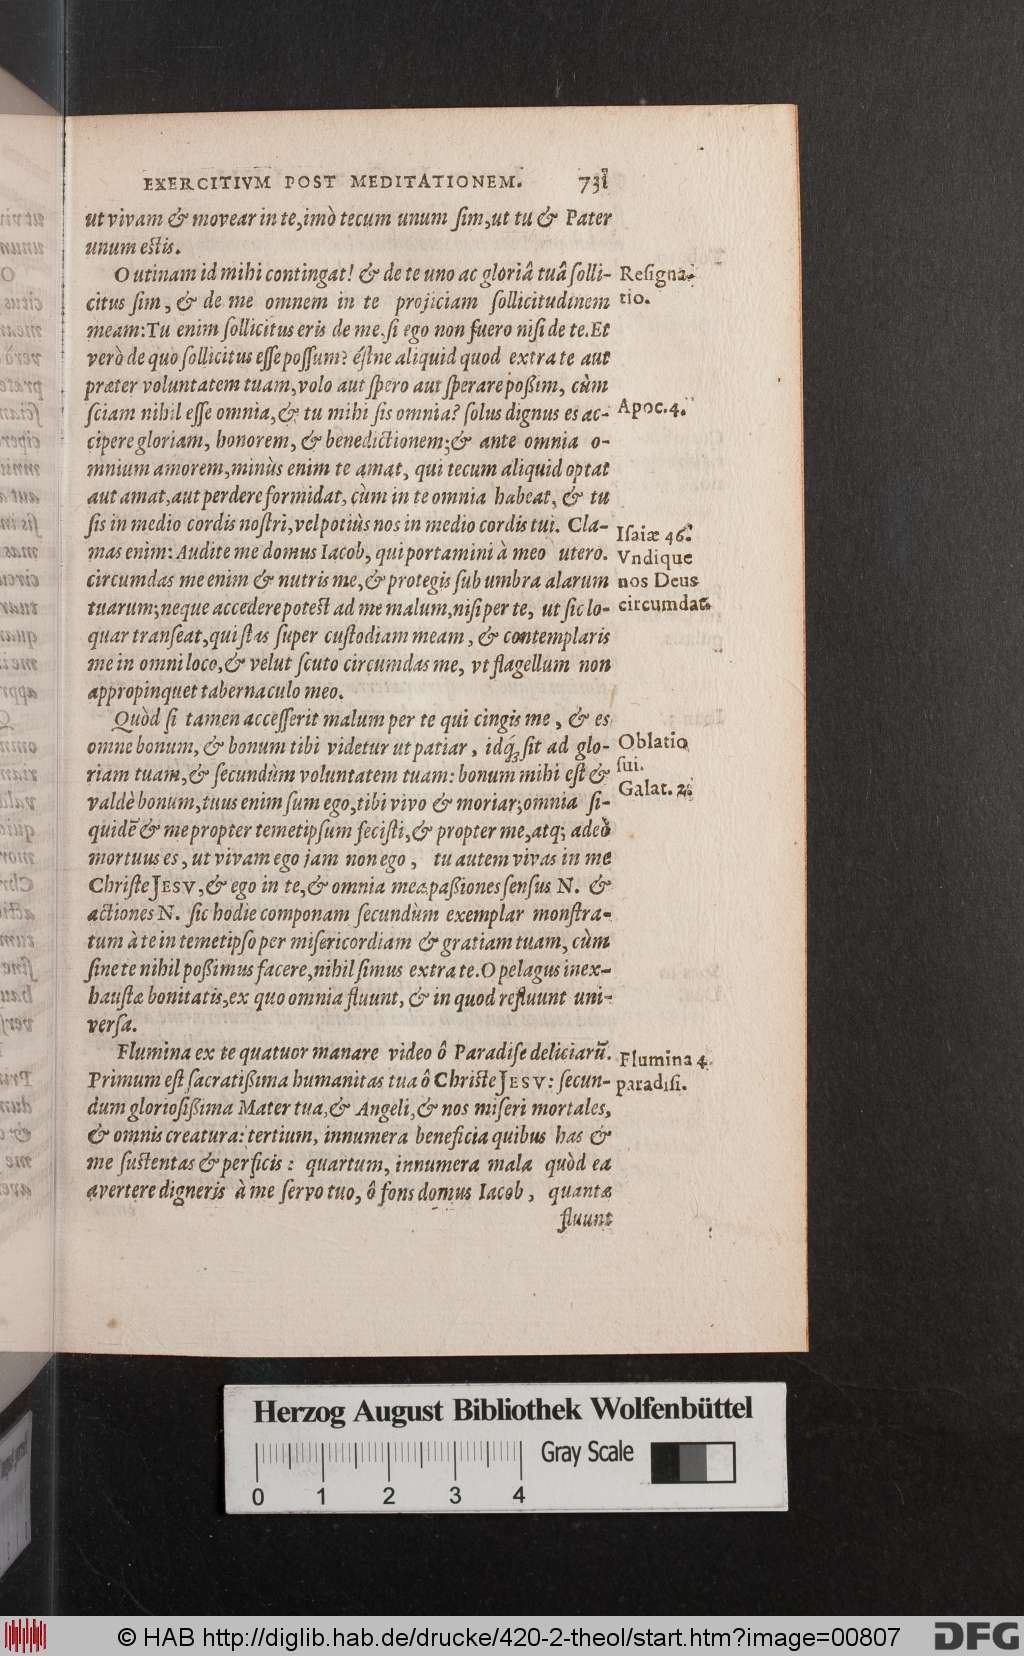 EXERCITIVM POST MEDITATIONEM. 731
ut vivam & movear in te, imò tecum unum sim, ut tu & Pater
unum estis.
O utinam id mihi contingat! & de te uno ac gloriâ tuâ solli-
citus sim, & de me omnem in te projiciam sollicitudinem
meam: Tu enim sollicitus eris de me. si ego non fuero nisi de te. Et
verò de quo sollicitus esse possum? éstne aliquid quod extra te aut
præter voluntatem tuam, volo aut spero aut sperare poßim, cùm
sciam nihil esse omnia, & tu mihi sis omnia? solus dignus es ac-
cipere gloriam, honorem, & benedictionem; & ante omnia o-
mnium amorem, minùs enim te amat, qui tecum aliquid optat
aut amat, aut perdere formidat, cùm in te omnia habeat, & tu
sis in medio cordis nostri, vel potiùs nos in medio cordis tui. Cla-
mas enim: Audite me domus Iacob, qui portamini à meo utero.
circumdas me enim & nutris me, & protegis sub umbra alarum
tuarum; neque accedere potest ad me malum, nisi per te, ut sic lo-
quar transeat, qui stas super custodiam meam, & contemplaris
me in omni loco, & velut scuto circumdas me, vt flagellum non
appropinquet tabernaculo meo.
Quòd si tamen accesserit malum per te qui cingis me, & es
omne bonum, & bonum tibi videtur ut patiar, idq́; sit ad glo-
riam tuam, & secundùm voluntatem tuam: bonum mihi est &
valdè bonum, tuus enim sum ego, tibi vivo & moriar; omnia si-
quidē & me propter temetipsum fecisti, & propter me, atq; adeò
mortuus es, ut vivam ego jam non ego, tu autem vivas in me
Christe JESV, & ego in te, & omnia mea paßiones sensus N. &
actiones N. sic hodie componam secundùm exemplar monstra-
tum à te in temetipso per misericordiam & gratiam tuam, cùm
sine te nihil poßimus facere, nihil simus extra te. O pelagus inex-
haustæ bonitatis, ex quo omnia fluunt, & in quod refluunt uni-
versa.
Flumina ex te quatuor manare video ô Paradise deliciarū.
Primum est sacratißima humanitas tua ô Christe JESV: secun-
dum gloriosißima Mater tua, & Angeli, & nos miseri mortales,
& omnis creatura: tertium, innumera beneficia quibus has &
me sustentas & perficis: quartum, innumera mala quòd ea
avertere digneris à me servo tuo, ô fons domus Iacob, quanta
fluunt
Resigna-
tio.
Apoc. 4.
Isaiæ 46.
Vndique
nos Deus
circumdat.
Oblatio
sui.
Galat. 2.
Flumina 4.
paradisi.
Herzog August Bibliothek Wolfenbüttel
Gray Scale
0 1 2 3 4
© HAB http://diglib.hab.de/drucke/420-2-theol/start.htm?image=00807
DFG